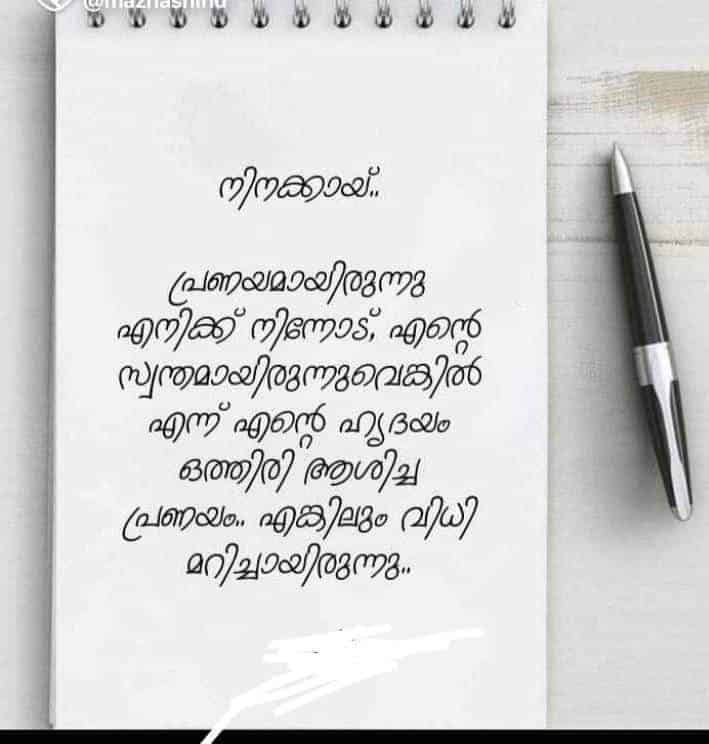 നിനക്കായ്..
പ്രണയമായിരുന്നു
എനിക്ക് നിന്നോട്, എന്റെ
സ്വന്തമായിരുന്നുവെങ്കിൽ
എന്ന് എന്റെ ഹൃദയം
ഒത്തിരി ആശിച്ച
പ്രണയം.. എങ്കിലും വിധി
മറിച്ചായിരുന്നു..